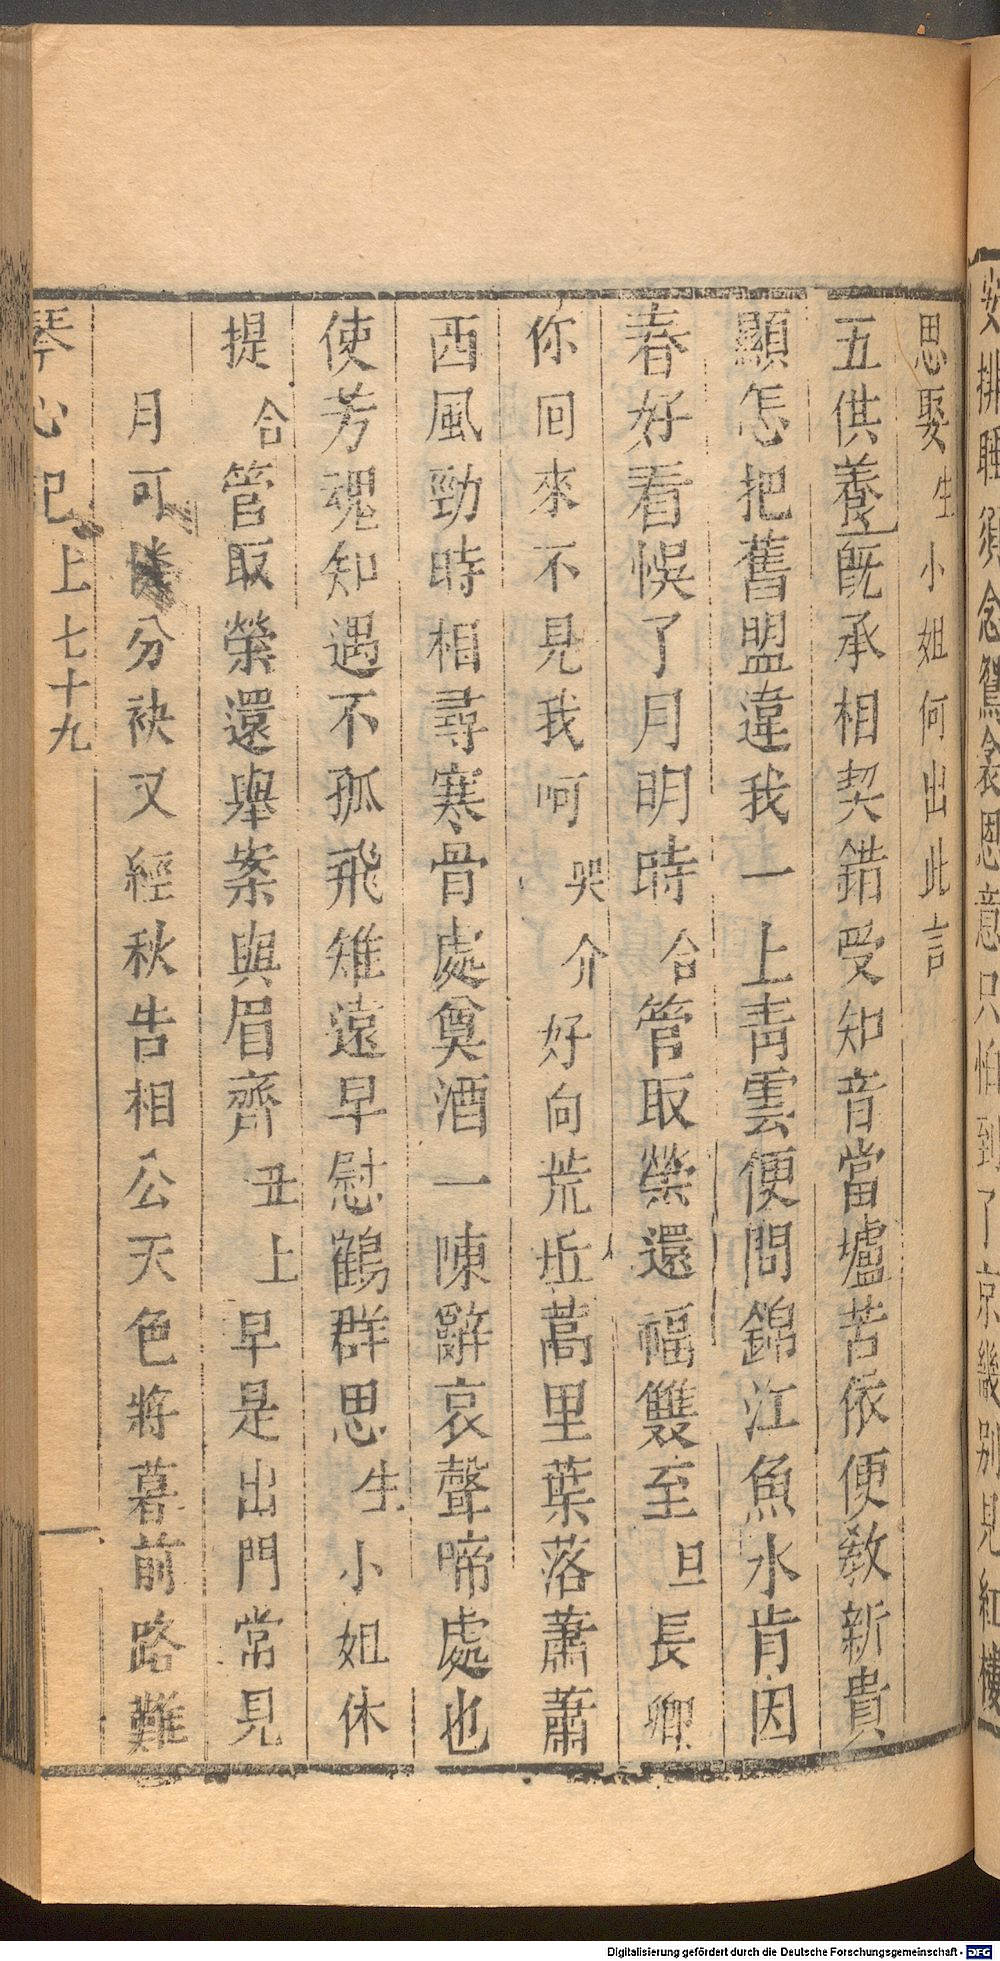 安排睡須念鴛衾恩意只怕到了京畿別見紅樓
思娶生小姐何出此言
五供養既承相契錯受知音當壚苦依便教新貴
顯怎把舊盟違我一上青雲便問錦江魚水肯因
春好看悞了月明時合管取榮還福雙至旦長卿
你回來不見我呵哭介好向荒坵蒿里葉落蕭蕭
西風勁時相尋寒骨處奠酒一陳辭哀聲啼處也
使芳魂知遇不孤飛雉遠早慰鶴群思生小姐休
提合管取榮還舉案與眉齊丑上早是出門常見
月可分袂又經秋告相公天色將暮前路難
琴心記上七十九
Digitalisierung gefördert durch die Deutsche Forschungsgemeinschaft - DFG